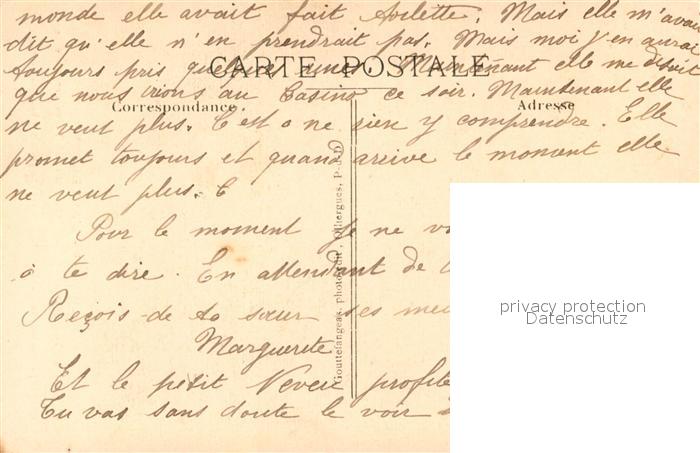 monde elle avait fait toilette. Mais elle m'avait
dit qu'elle n'en prendrait pas. Mais moi j'en aurai
toujours pris quelques unes. Maintenant elle me disait
CARTE POSTALE
que nous irions au Casino ce soir. Maintenant elle
Correspondance. Adresse
ne veut plus. C'est a ne rien y comprendre. Elle
promet toujours et quand arrive le moment elle
ne veut plus. C
Pour le moment je ne
à te dire. En attendant de
Reçois de ta sœur ses
Marguerite
Et le petit Neveu profite
Tu vas sans doute le voir
Gouttefangeas, photo-édit., Olliergues, P.-de-D.
privacy protection
Datenschutz